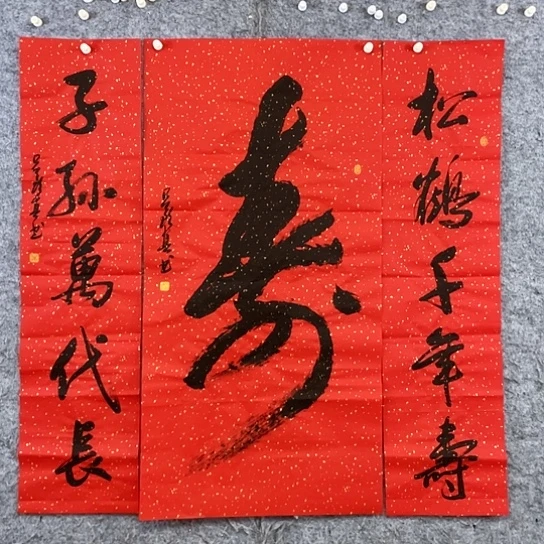 松鶴千年壽
寿
子孫萬代長